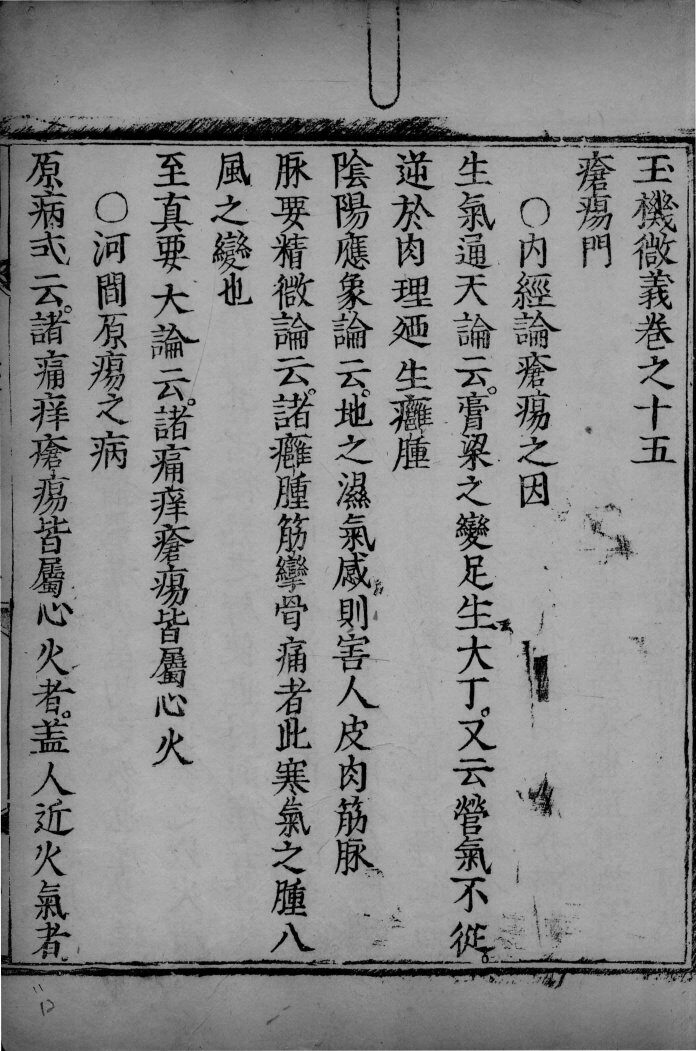 玉機微義卷之十五
瘡瘍門
○內經論瘡瘍之因
生氣通天論云。膏粱之變足生大丁。又云營氣不從。
逆於肉理廼生癰腫
陰陽應象論云。地之濕氣感則害人皮肉筋脉
脉要精微論云。諸癰腫筋攣骨痛者此寒氣之腫八
風之變也
至真要大論云。諸痛痒瘡瘍皆屬心火
○河間原瘍之病
原病式云。諸痛痒瘡瘍皆屬心火者。盖人近火氣者